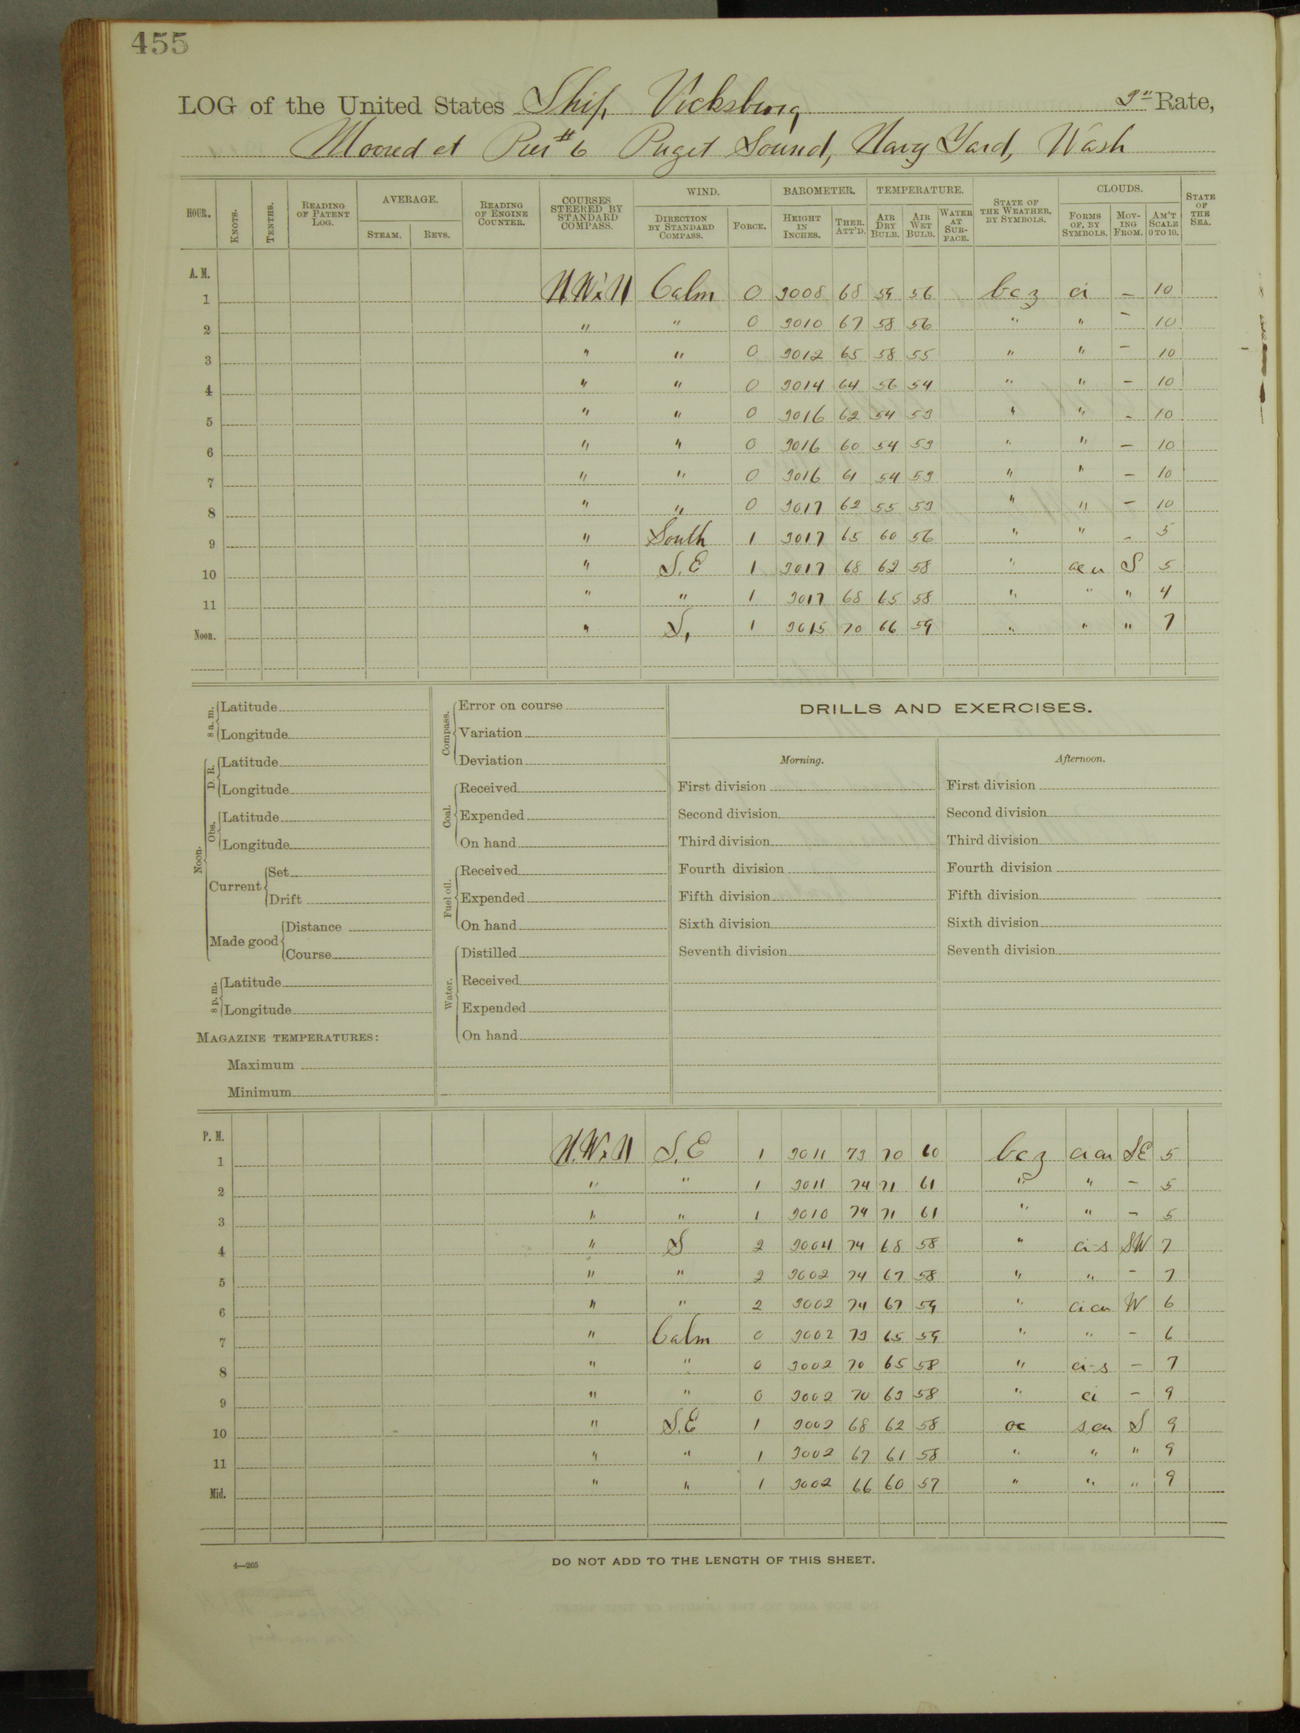 455
LOG of the United States Ship Vicksburg 3" Rate,
Moored at Pier #6 Puget Sound, Navy Yard, Wash
HOUR. KNOTS. TENTHS. READING OF PATENT LOG. AVERAGE. STEAM. REVS. READING OF ENGINE COUNTER. COURSES STEERED BY STANDARD COMPASS. WIND. DIRECTION BY STANDARD COMPASS. FORCE. BAROMETER. HEIGHT IN INCHES. THER. ATT'D. TEMPERATURE. AIR DRY BULB. AIR WET BULB. WATER AT SURFACE. STATE OF THE WEATHER, BY SYMBOLS. CLOUDS. FORMS OF, BY SYMBOLS. MOVING FROM. AM'T SCALE 0 TO 10. STATE OF THE SEA.
A. M.
1 NWxN Calm 0 3008 68 59 56 bcz ci – 10
2 " " 0 3010 67 58 56 " " – 10
3 " " 0 3012 65 58 55 " " – 10
4 " " 0 3014 64 56 54 " " – 10
5 " " 0 3016 62 54 53 " " – 10
6 " " 0 3016 60 54 53 " " – 10
7 " " 0 3016 61 54 53 " " – 10
8 " " 0 3017 62 55 53 " " – 10
9 " South 1 3017 65 60 56 " " – 5
10 " S.E 1 3017 68 62 58 " S 5
11 " " 1 3017 68 65 58 " " " 4
Noon. " S, 1 3015 70 66 59 " " " 7
8 a. m. Latitude
Longitude
Noon. D. R. Latitude
Longitude
Obs. Latitude
Longitude
Current Set
Drift
Made good Distance
Course
8 p. m. Latitude
Longitude
MAGAZINE TEMPERATURES:
Maximum
Minimum
Compass. Error on course
Variation
Deviation
Coal. Received
Expended
On hand
Fuel oil. Received
Expended
On hand
Water. Distilled
Received
Expended
On hand
DRILLS AND EXERCISES.
Morning.
First division
Second division
Third division
Fourth division
Fifth division
Sixth division
Seventh division
Afternoon.
First division
Second division
Third division
Fourth division
Fifth division
Sixth division
Seventh division
P. M.
1 N.WxN S.E 1 3011 73 70 60 bcz ci cu SE 5
2 " " 1 3011 74 71 61 " " – 5
3 " " 1 3010 74 71 61 " " – 5
4 " S 2 3004 74 68 58 " ci-s SW 7
5 " " 2 3002 74 67 58 " " – 7
6 " " 2 3002 74 67 59 " ci cu W 6
7 " Calm 0 3002 73 65 59 " " – 6
8 " " 0 3002 70 65 58 " ci-s – 7
9 " " 0 3002 70 63 58 " ci – 9
10 " S.E 1 3002 68 62 58 oc s cu S 9
11 " " 1 3002 67 61 58 " " " 9
Mid. " " 1 3002 66 60 57 " " " 9
4—205
DO NOT ADD TO THE LENGTH OF THIS SHEET.